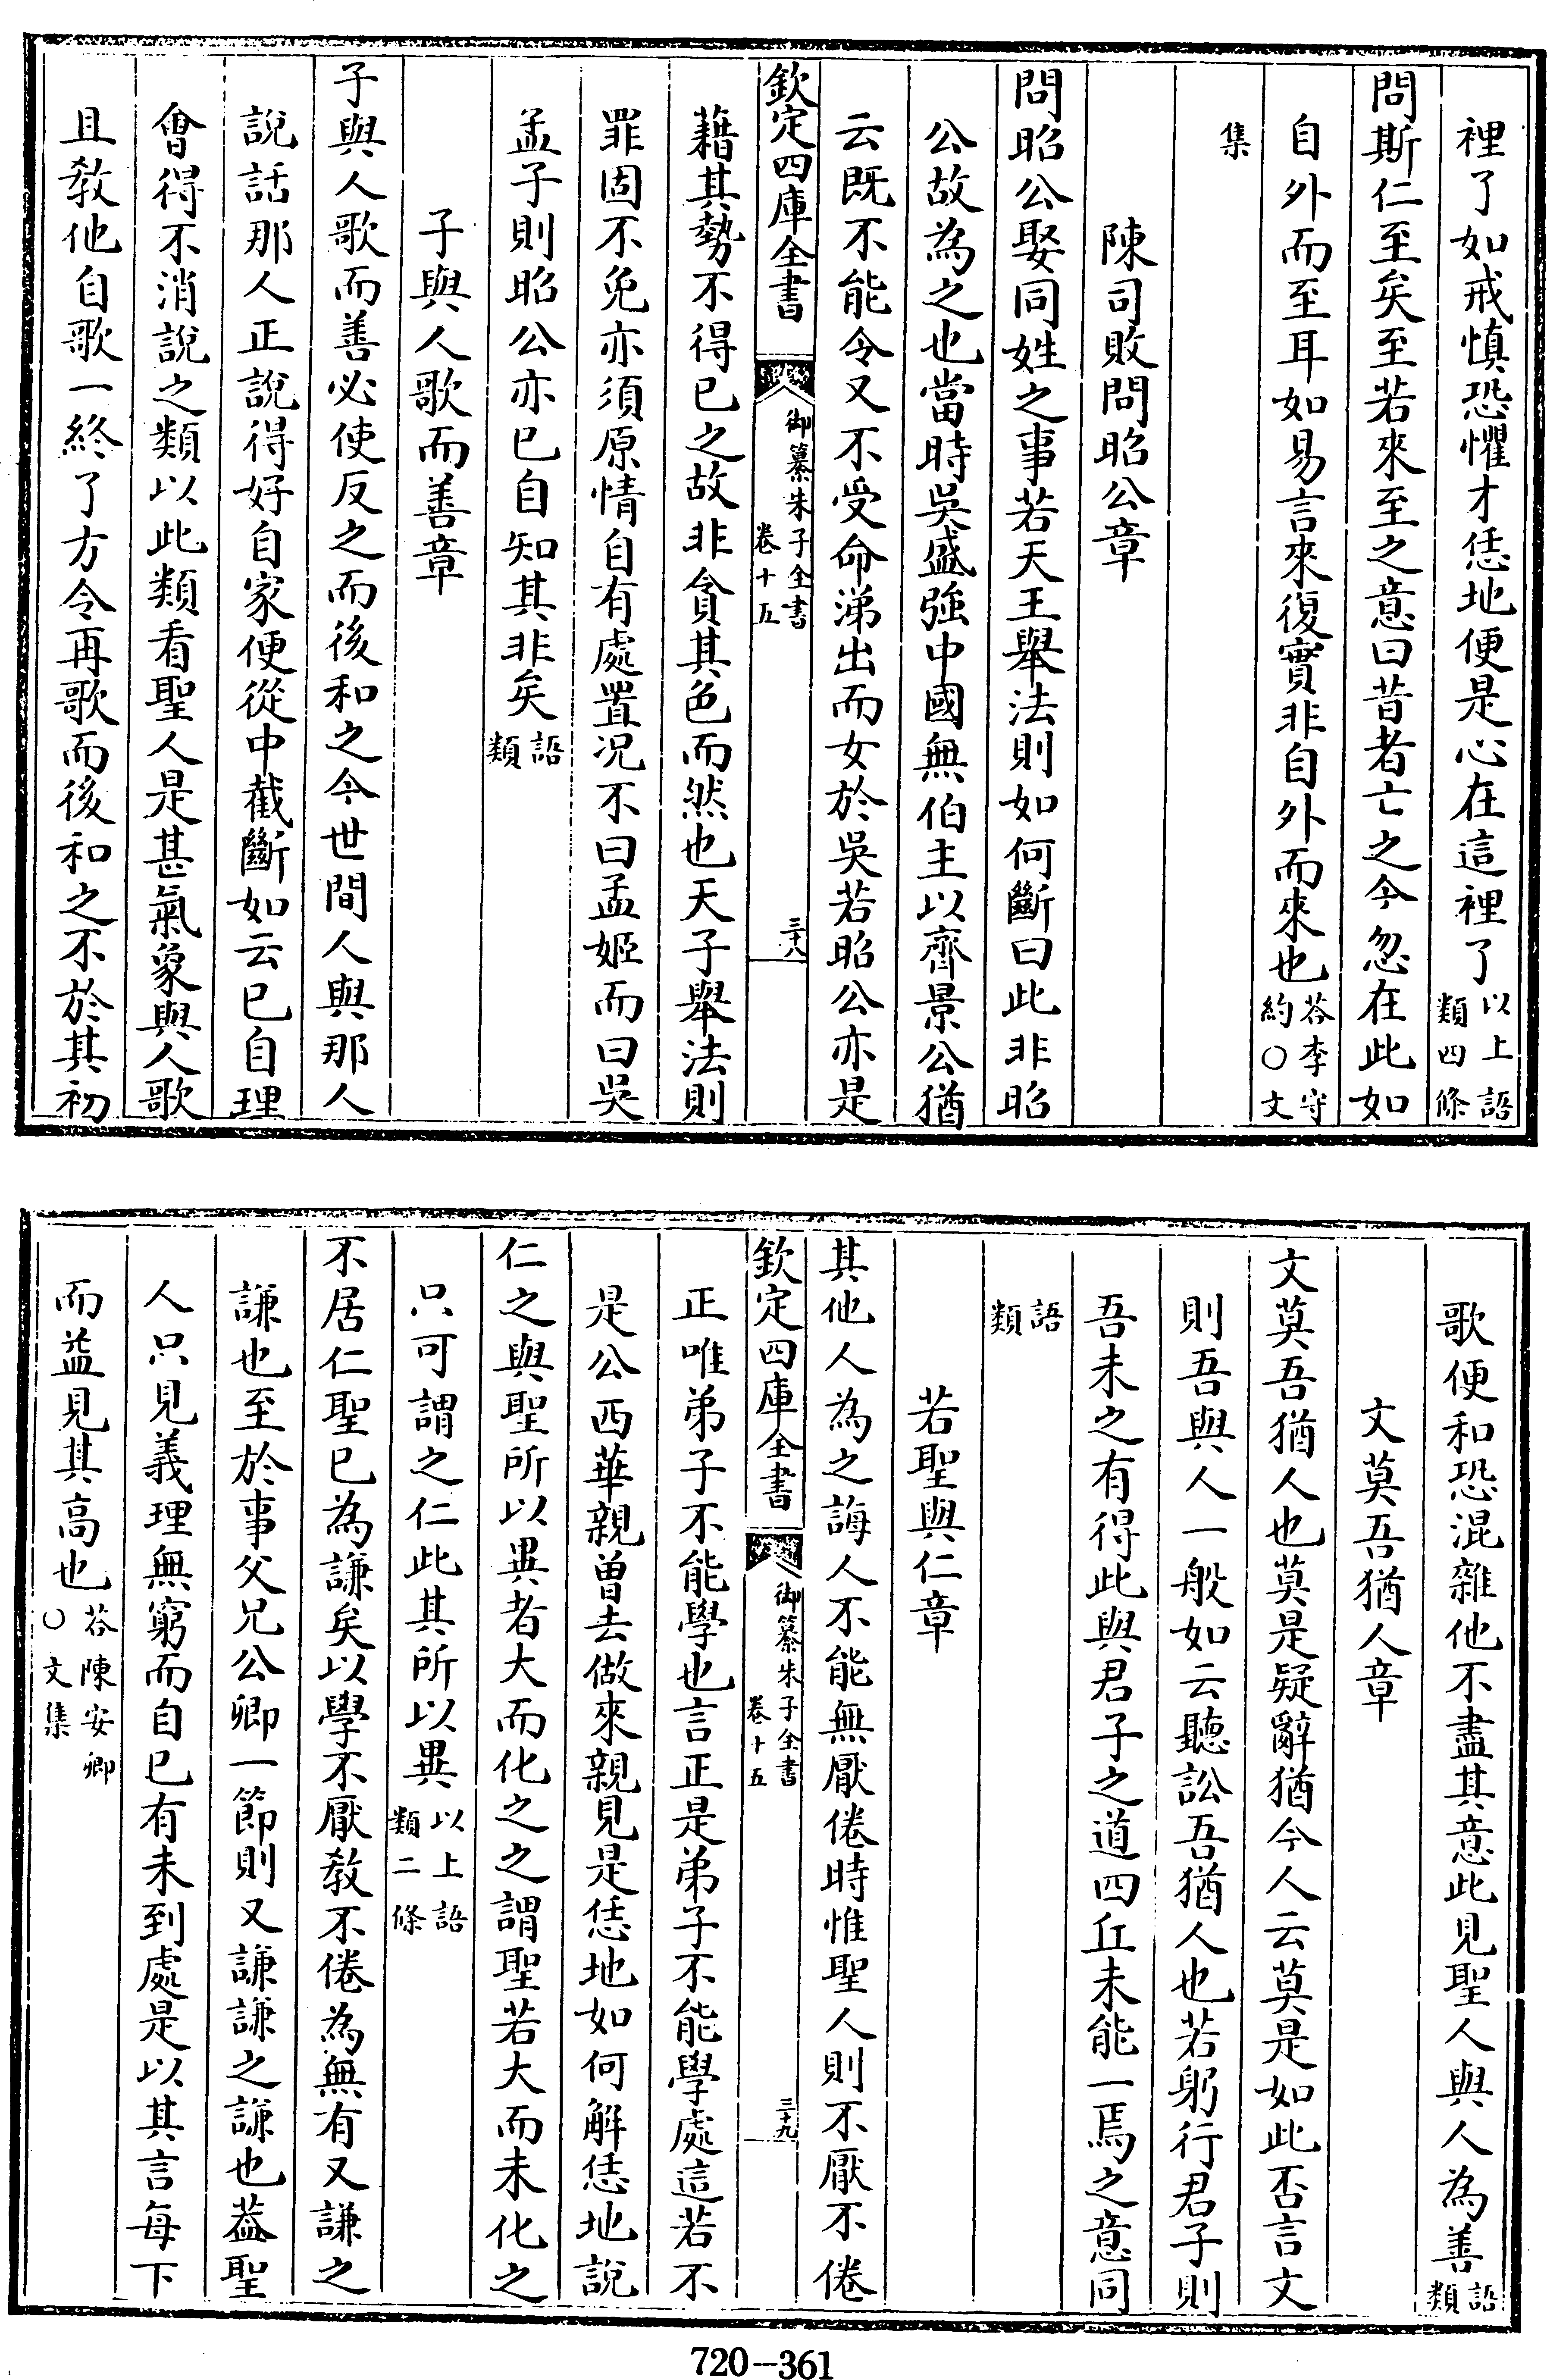 裡了如戒慎恐懼才恁地便是心在這裡了以上語類四條
問斯仁至矣至若來至之意曰昔者亡之今忽在此如
自外而至耳如易言來復實非自外而來也荅李守約○文
集
陳司敗問昭公章
問昭公娶同姓之事若天王舉法則如何斷曰此非昭
公故為之也當時吳盛強中國無伯主以齊景公猶
云既不能令又不受命涕出而女於吳若昭公亦是
欽定四庫全書 御纂朱子全書 卷十五 三十八
藉其勢不得已之故非貪其色而然也天子舉法則
罪固不免亦須原情自有處置况不曰孟姬而曰吳
孟子則昭公亦已自知其非矣語類
子與人歌而善章
子與人歌而善必使反之而後和之今世間人與那人
說話那人正說得好自家便從中截斷如云已自理
會得不消說之類以此類看聖人是甚氣象與人歌
且敎他自歌一終了方令再歌而後和之不於其初
歌便和恐混雜他不盡其意此見聖人與人為善語類
文莫吾猶人章
文莫吾猶人也莫是疑辭猶今人云莫是如此否言文
則吾與人一般如云聽訟吾猶人也若躬行君子則
吾未之有得此與君子之道四丘未能一焉之意同
語類
若聖與仁章
其他人為之誨人不能無厭倦時惟聖人則不厭不倦
欽定四庫全書 御纂朱子全書 卷十五 三十九
正唯弟子不能學也言正是弟子不能學處這若不
是公西華親曾去做來親見是恁地如何解恁地說
仁之與聖所以異者大而化之之謂聖若大而未化之
只可謂之仁此其所以異以上語類二條
不居仁聖已為謙矣以學不厭敎不倦為無有又謙之
謙也至於事父兄公卿一節則又謙謙之謙也葢聖
人只見義理無窮而自已有未到處是以其言每下
而益見其高也荅陳安卿○文集
720-361